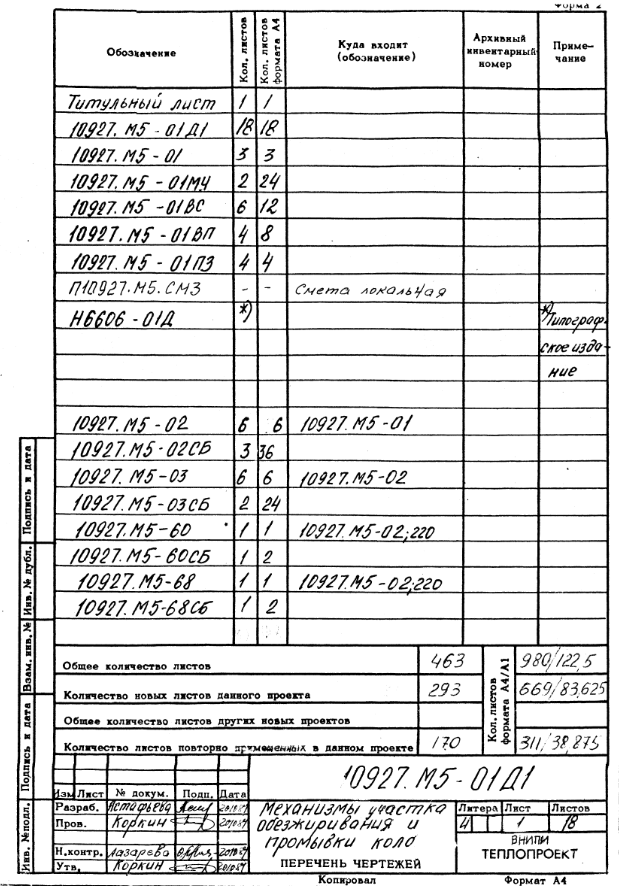 Форма 2
Обозначение
Кол. листов
Кол. листов формата А4
Куда входит (обозначение)
Архивный инвентарный номер
Приме-чание
Титульный лист 1 1
10927.М5-01Д1 18 18
10927.М5-01 3 3
10927.М5-01МЧ 2 24
10927.М5-01ВС 6 12
10927.М5-01ВП 4 8
10927.М5-01ПЗ 4 4
П10927.М5.СМ3 - - Смета локальная
Н6606-01Д *) *)Типограф-
ское изда-
ние
10927.М5-02 6 6 10927.М5-01
10927.М5-02СБ 3 36
10927.М5-03 6 6 10927.М5-02
10927.М5-03СБ 2 24
10927.М5-60 1 1 10927.М5-02;220
10927.М5-60СБ 1 2
10927.М5-68 1 1 10927.М5-02;220
10927.М5-68СБ 1 2
Общее количество листов 463
Количество новых листов данного проекта 293
Общее количество листов других новых проектов
Количество листов повторно примененных в данном проекте 170
Кол. листов формата А4/А1
980/122,5
669/83,625
311/38,875
Подпись и дата
Инв. № дубл.
Взам. инв. №
Подпись и дата
Инв. №подл.
10927.М5-01Д1
Изм Лист № докум. Подп. Дата
Разраб. Астафьева
Пров. Коркин
Н.контр. Лазарева
Утв. Коркин
Механизмы участка
обезжиривания и
промывки коло
ПЕРЕЧЕНЬ ЧЕРТЕЖЕЙ
Литера Лист Листов
И 1 18
ВНИПИ
ТЕПЛОПРОЕКТ
Копировал Формат А4